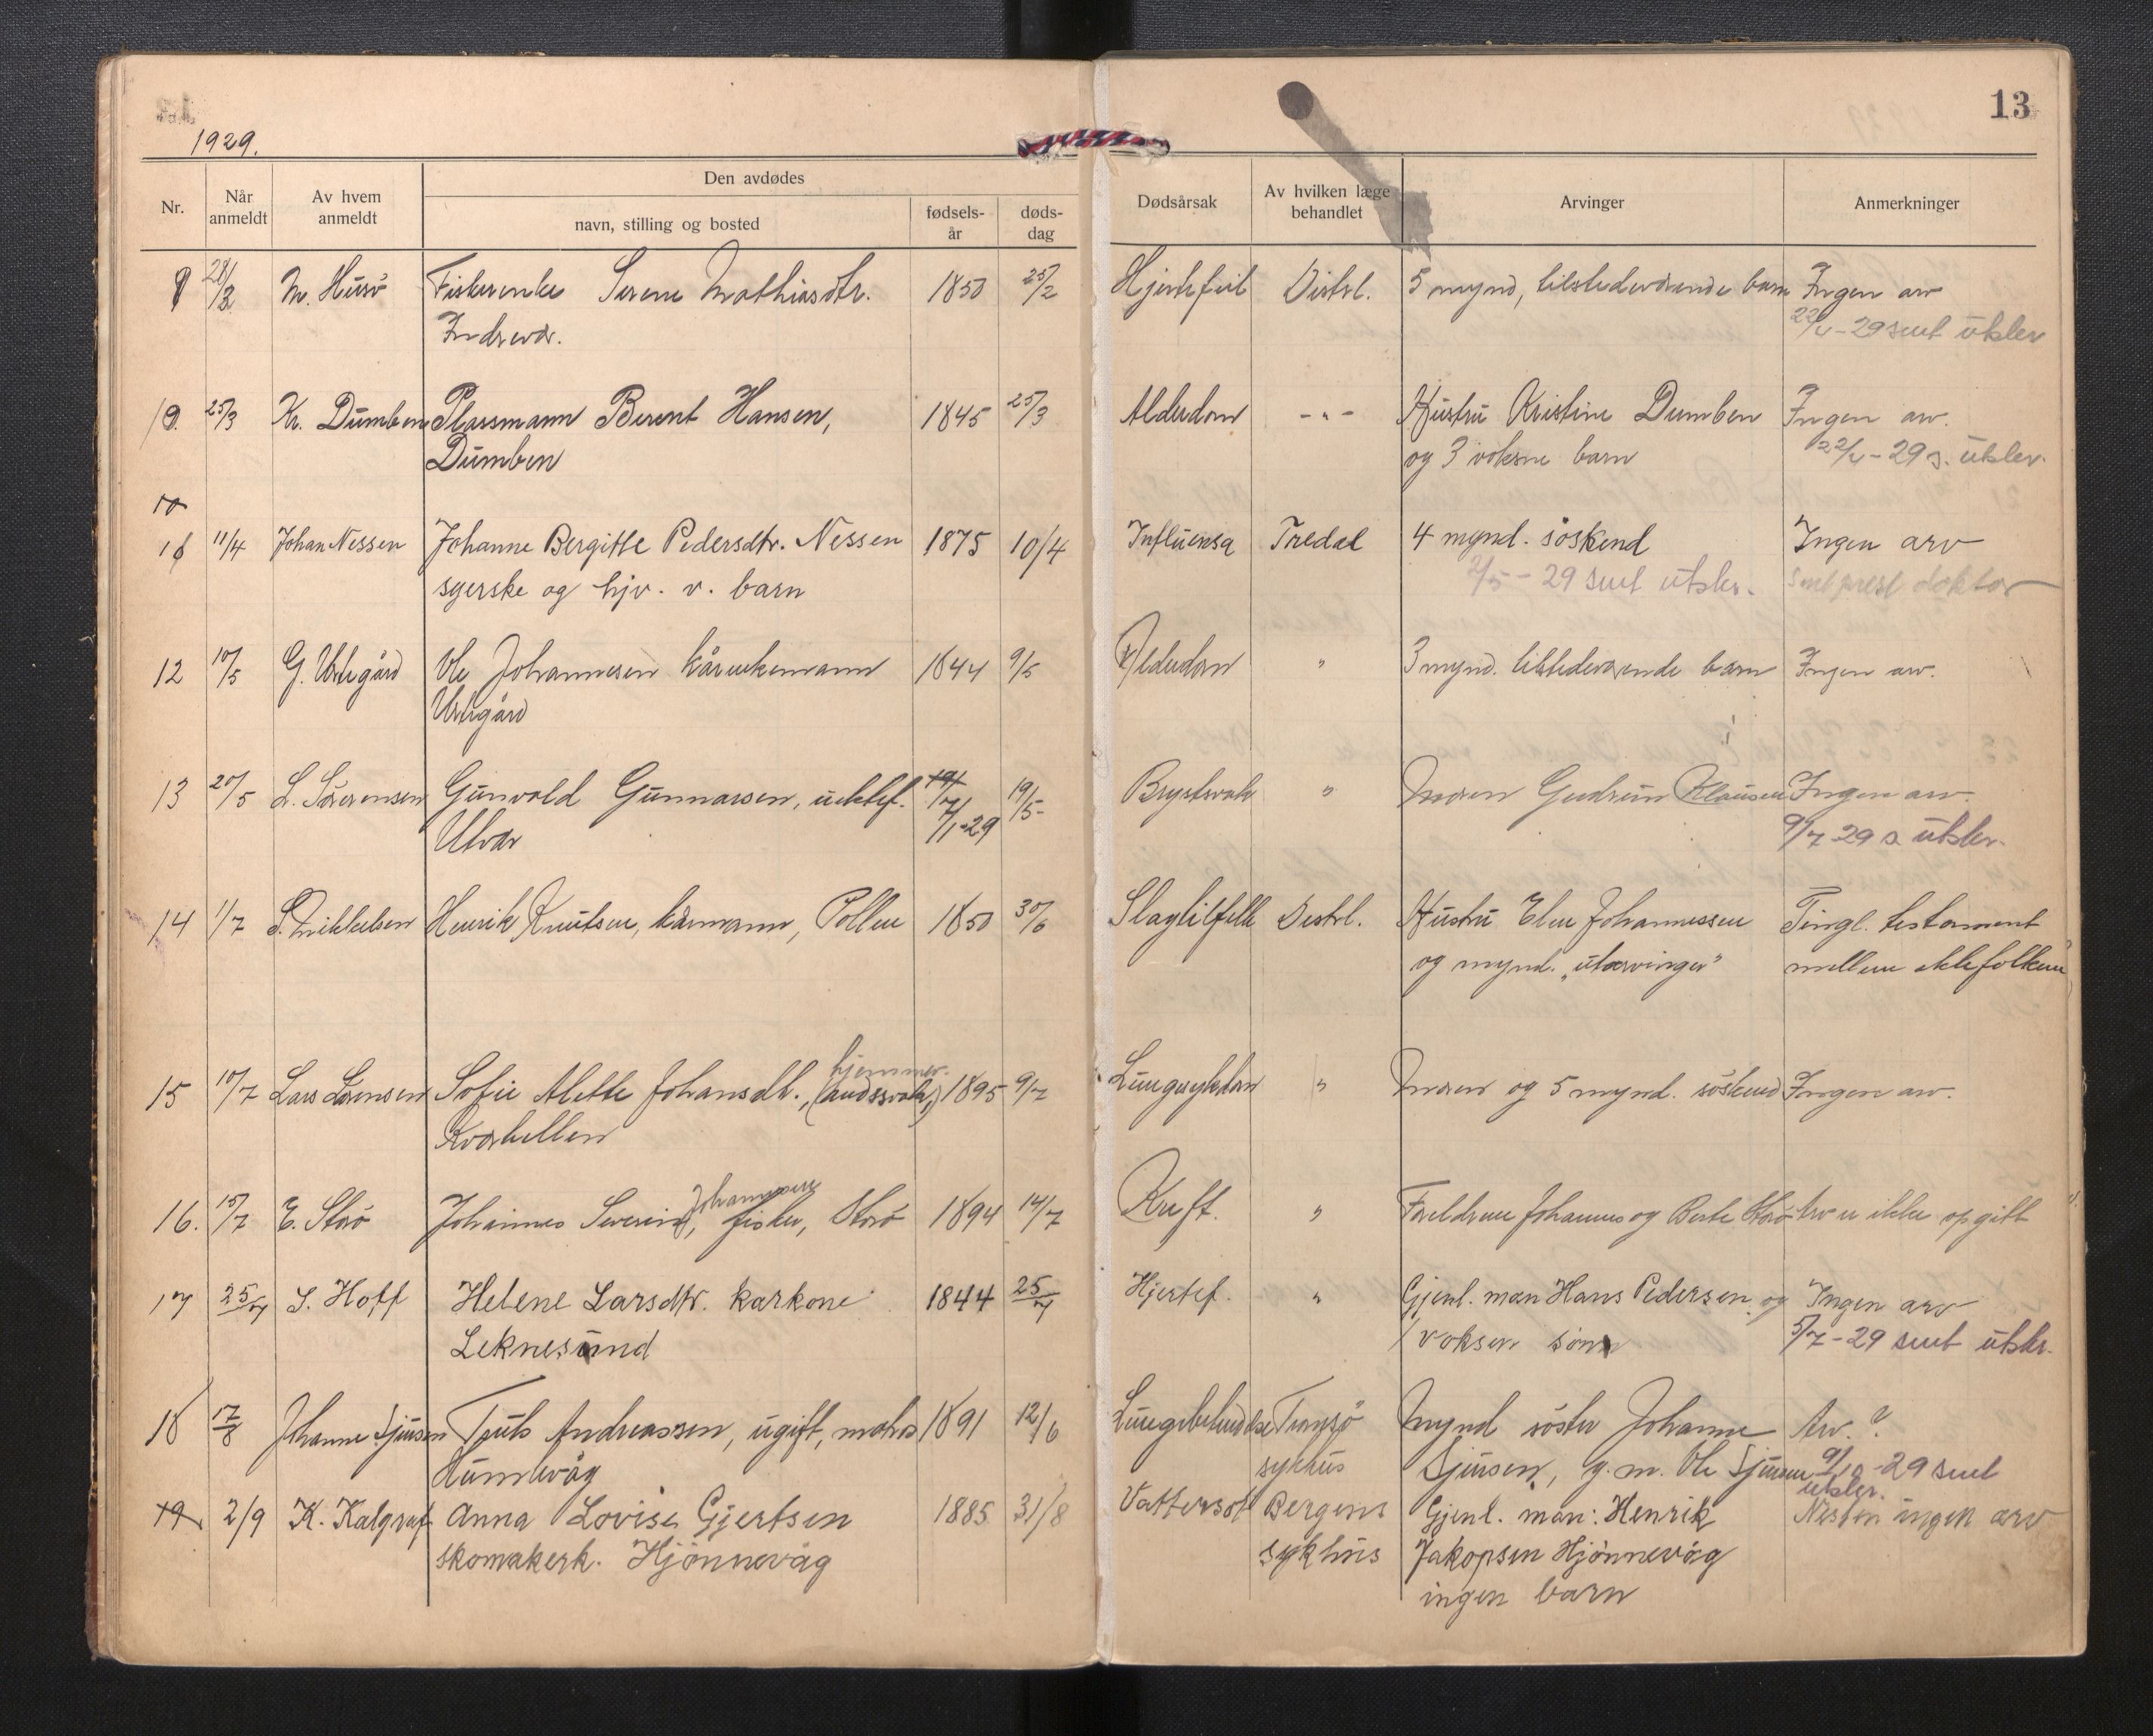 13
1929.
Nr.
Når anmeldt
Av hvem anmeldt
Den avdødes
navn, stilling og bosted
fødsels-år
døds-dag
Dødsårsak
Av hvilken læge behandlet
Arvinger
Anmerkninger
9 28/2 M. Husö Fiskerenke Serene Mathiasdtr. 1850 25/2 Hjertefeil Distrl. 5 mynd, tilstedeværende barn Ingen arv
Indrevær. 22/4-29 sent utskr
25/3 Kr. Dumben Plassmann Berent Hansen, 1845 25/3 Alderdom -"- Hustru Kristine Dumben Ingen arv.
Dumben og 3 voksne barn 22/4-29 s. utskr.
10
11/4 Johan Nessen Johanne Bergitte Pedersdtr. Nessen 1875 10/4 Influensa Tredal 4 mynd. søskend Ingen arv
syerske og hjv. v. barn 2/5-29 sent utskr. sent prest doktor
12 10/5 G. Ole Johannesen kårenkemann 1844 9/5 Alderdom " 3 mynd. tilstedeværende barn Ingen arv.
13 20/5 L. Sörensen Gunvald Gunnarsen, uektef. 7/1-29 19/5 Brystsvak " Moren Gudrun Klausen Ingen arv.
Utvær 9/7-29 s. utskr.
14 1/7 S. Mikkelsen Henrik Knutsen, kårmann, Pollen 1850 30/6 Slagtilfelle Distrl. Hustru Elen Johannessen Tingl. testament
og mynd. "utarvinger" mellem ektefolkene
hjemmev.
15 10/7 Lars Sörensen Sofie Alette Johansdtr., (åndssvak,) 1895 9/7 Lungesykdom " Moren og 5 mynd. söskend Ingen arv.
Kværhellen
Johannessen
16. 15/7 E. Storö Johannes Severin, fisker, Storö 1894 14/7 Kreft. " Foreldrene Johannes og Berte Storö Arv er ikke opgitt
17 25/7 S. Hoff Helene Larsdtr. karkone 1844 25/7 Hjertef. " Gjenl. man Hans Pedersen og Ingen arv
Leknesund 1 voksen sönn 5/7-29 sent utskr.
18 17/8 Johanne Sjursen Truls Andreassen, ugift, matros 1891 12/6 Lungebetendelse Tromsö Mynd söster Johanne Arv?
Humlevåg sykhus Sjursen, g.m. Ole Sjursen 9/10-29 sent
utskr.
19 2/9 K. Kalgraf Anna Lovise Gjertsen 1885 31/8 Vattersot Bergens Gjenl. man: Henrik Nesten ingen arv
skomakerk. Hjönnevåg sykhus Jakopsen Hjönnevåg
ingen barn